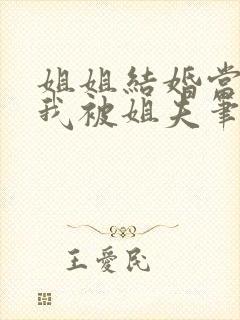 姐姐結婚當
我被姐夫筆
王愛民